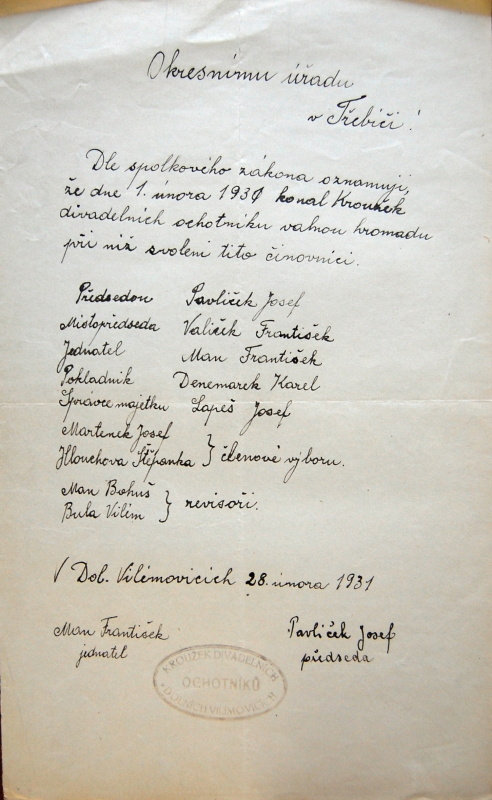 Okresnímu úřadu
v Třebíči!
Dle spolkového zákona oznamuji,
že dne 1. února 1930 konal Kroužek
divadelních ochotníku valnou hromadu
při níž zvoleni tito činovníci.
Předsedou Pavlíček Josef
Mistopředseda Valíček František
Jednatel Man František
Pokladník Denemarek Karel
Správce majetku Lapeš Josef
Martenek Josef
Hlouchova Štěpanka } členové výboru.
Man Bohuš
Bula Vilém } revisoři.
V Dol. Vilémovicích 28. února 1931
Man František Pavlíček Josef
jednatel předseda
KROUŽEK DIVADELNÍCH
OCHOTNÍKŮ
DOLNÍCH VILÉMOVICÍCH